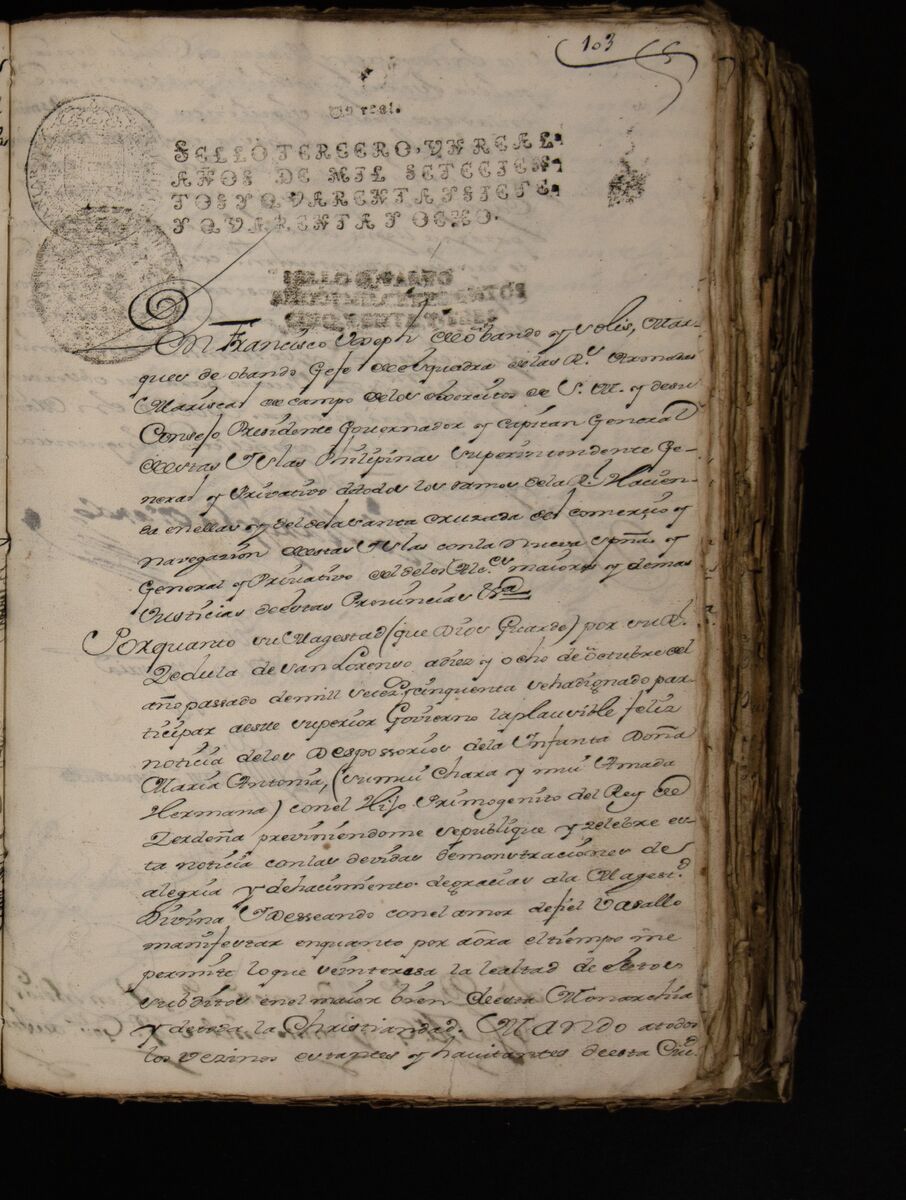 103
Un real.
SELLO TERCERO, UN REAL
AÑOS DE MIL SETECIEN
TOS Y QVARENTA Y SIETE
Y QVARENTA Y OCHO.
Dn Francisco Joseph de obando y solis, Mar-
ques de obando Gefe de esquadra de las Rs. Armadas
Mariscal de campo de los exercitos de S. M. y de su
Consejo Presidente Governador y Capitan General
de estas Yslas Philipinas superintendente Ge-
neral y Privativo de todos los ramos de la Rl. Hacien-
da en ellas y del de la santa cruzada del comerzio y
navegazion de estas Yslas con la nueva españa y
General y Privativo del de los Alces. maiores y demas
Justicias de estas Provincias &a
Por quanto su Magestad (que Dios Guarde) por su Rl.
Zedula de san Lorenso a diez y ocho de octubre del
año passado de mill setezs. cinquenta se ha dignado par-
ticipar a este superior Govierno la plausible feliz
noticia de los Despossorios de la Infanta Doña
Maria Antonia, (su mui chara y mui Amada
Hermana) con el Hijo Primogenito del Rey de
Zerdeña previniendome se publique y zelebre es-
ta noticia con las devidas demonstraciones de
alegria y de hacimiento de gracias a la Magestd.
Divina Y Desseando con el amor de fiel Vasallo
manifestar en quanto por aora el tiempo me
permite lo que se interesa la lealtad de estos
subditos en el maior bien de esta Monarchia
y de toda la Christiandad. Mando a todos
los vezinos estantes y havitantes de esta Ciud.